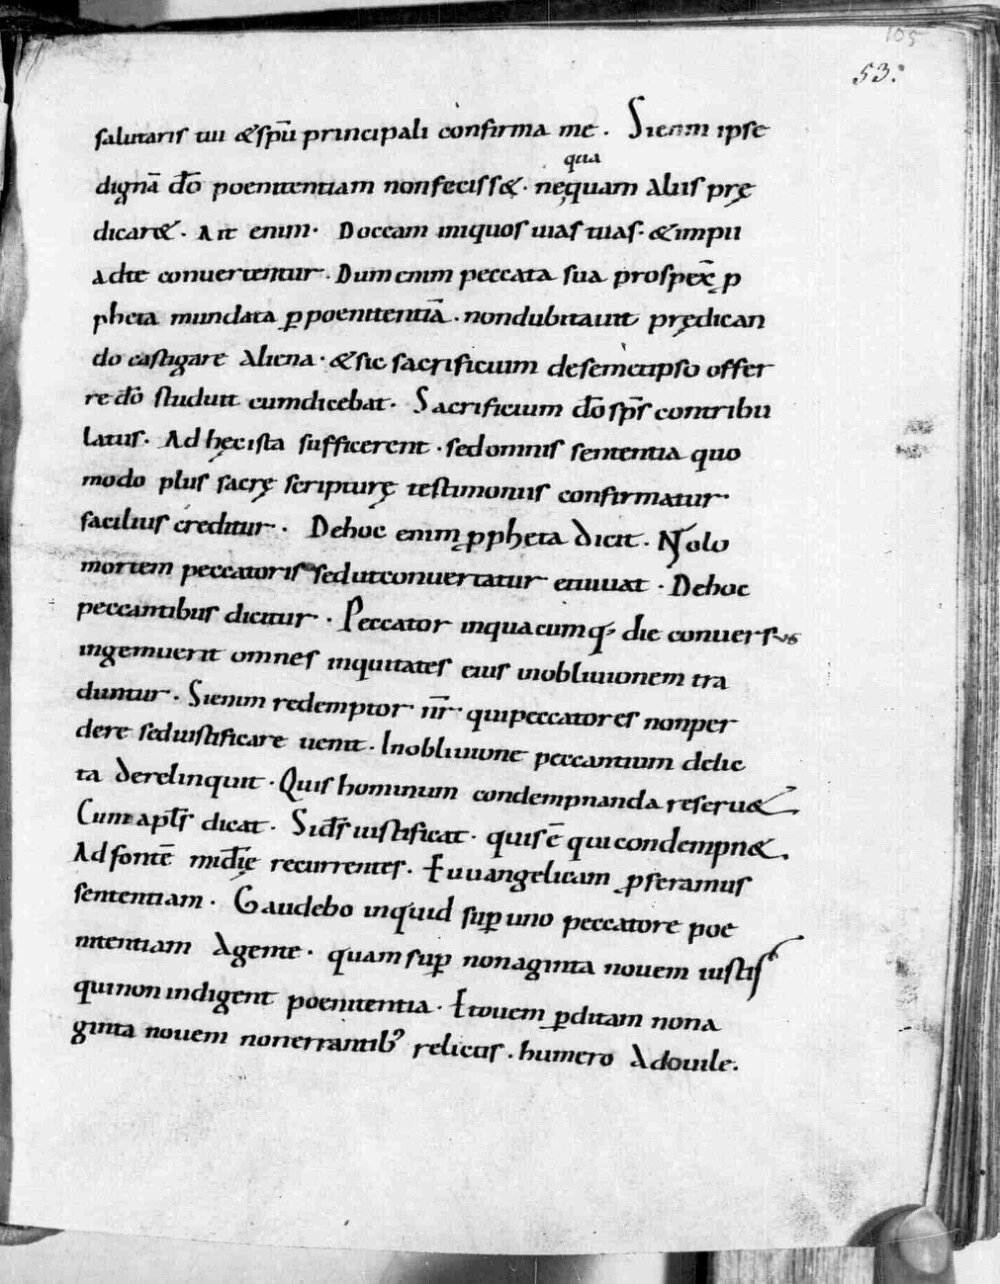 105
53.
salutaris tui & sp̄u principali confirma me. Si enim ipse
qua
dignā dō poenitentiam non feciss&. nequam aliis prę
dicar&. Ait enim. Doceam iniquos uias tuas. & impii
ad te conuertentur. Dum enim peccata sua prospex̄ p
pheta mundata ꝑ poenitentiā. non dubitauit prędican
do castigare aliena. & sic sacrificium de semetipso offer
re dō studuit cum dicebat. Sacrificium dō sp̄s contribu
latus. Ad hęc ista sufficerent. sed omnis sententia quo
modo plus sacrę scripturę testimoniis confirmatur.
facilius creditur. De hoc enim ꝓpheta dicit. Nolo
mortem peccatoris sed ut conuertatur et uiuat. De hoc
peccantibus dicitur. Peccator in quacumq; die conuersus
ingemuerit omnes iniquitates eius in obliuionem tra
duntur. Si enim redemptor nr̄. qui peccatores non per
dere sed iustificare uenit. In obliuione peccantium delic
ta derelinquit. Quis hominum condempnanda reseru&.
Cum apl̄s dicat. Si d̄s iustificat. quis ē qui condempn&.
Ad fontē mīdię recurrentes. Euuangelicam ꝓferamus
sententiam. Gaudebo inquid suꝑ uno peccatore poe
nitentiam agente. quam suꝑ nonaginta nouem iustis
qui non indigent poenitentia. Et ouem ꝑditam nona
ginta nouem non errantib; relictis. humero ad ouile.